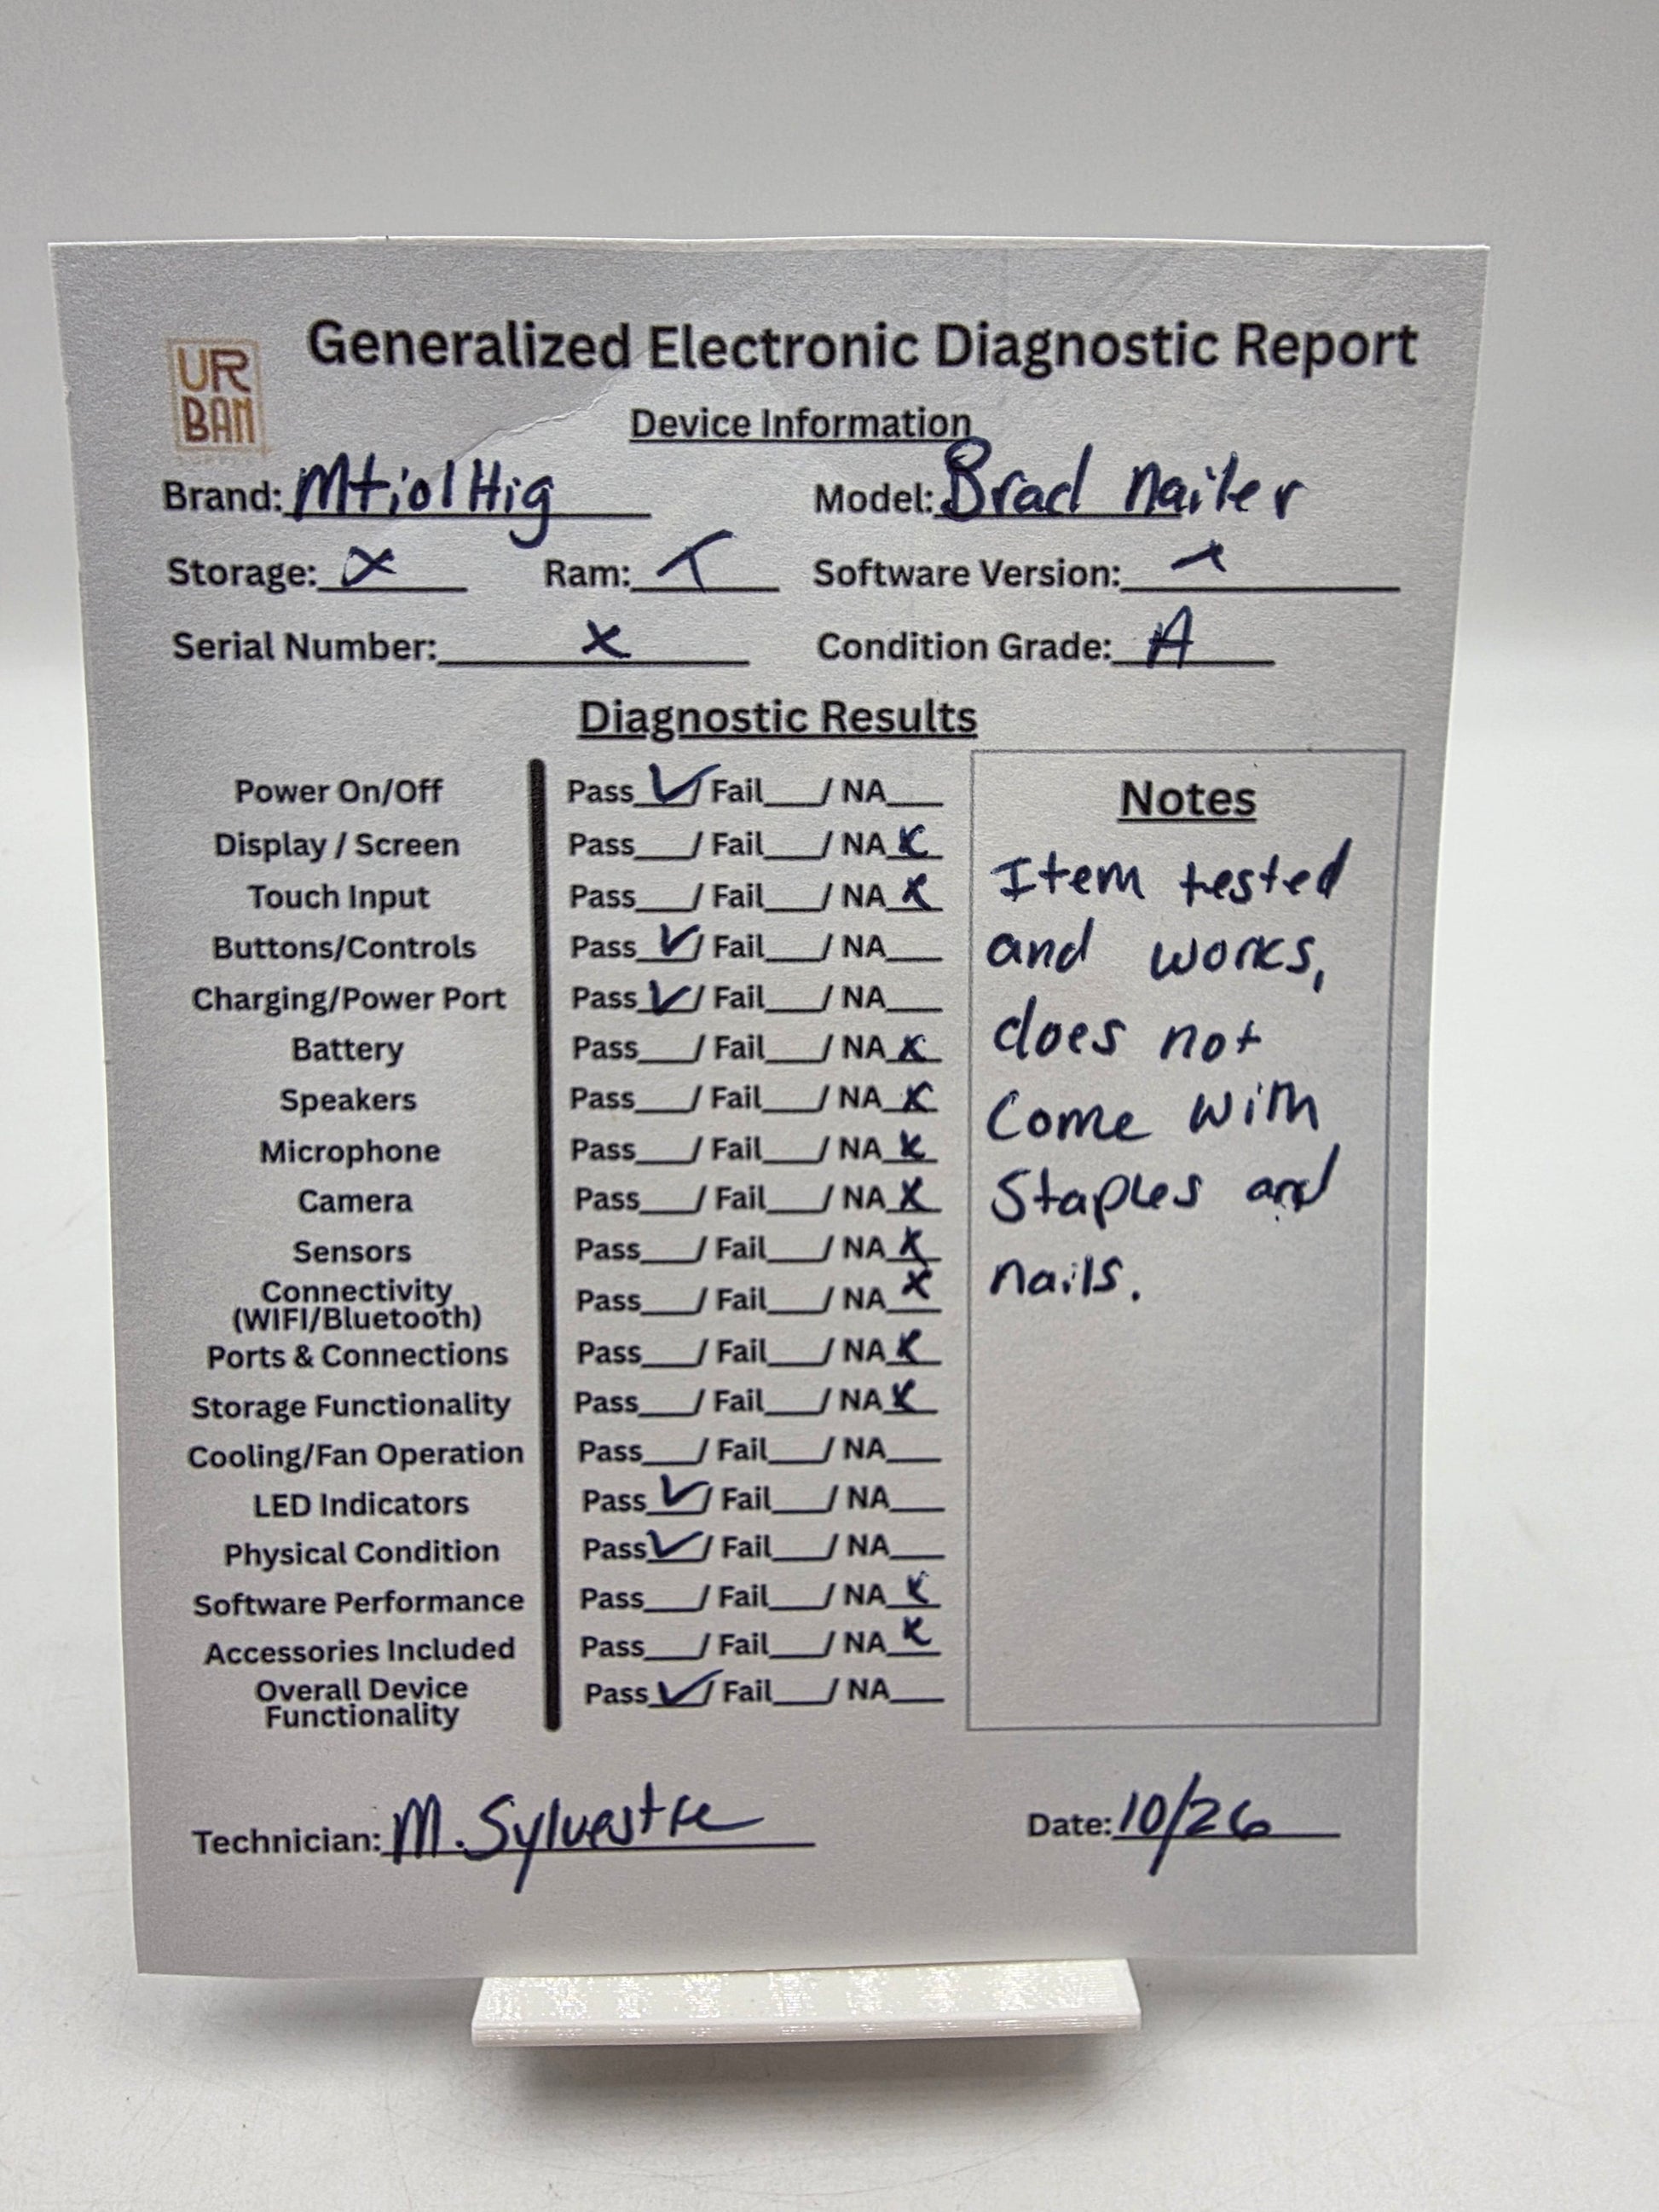 UR
BAN
Generalized Electronic Diagnostic Report
Device Information
Brand: MtiolHig Model: Brad Nailer
Storage: X Ram: X Software Version: X
Serial Number: X Condition Grade: A
Diagnostic Results
Power On/Off Pass ✓/ Fail___/ NA___
Display / Screen Pass___/ Fail___/ NA X
Touch Input Pass___/ Fail___/ NA X
Buttons/Controls Pass ✓/ Fail___/ NA___
Charging/Power Port Pass ✓/ Fail___/ NA___
Battery Pass___/ Fail___/ NA X
Speakers Pass___/ Fail___/ NA X
Microphone Pass___/ Fail___/ NA X
Camera Pass___/ Fail___/ NA X
Sensors Pass___/ Fail___/ NA X
Connectivity
(WIFI/Bluetooth) Pass___/ Fail___/ NA X
Ports & Connections Pass___/ Fail___/ NA X
Storage Functionality Pass___/ Fail___/ NA X
Cooling/Fan Operation Pass___/ Fail___/ NA___
LED Indicators Pass ✓/ Fail___/ NA___
Physical Condition Pass ✓/ Fail___/ NA___
Software Performance Pass___/ Fail___/ NA X
Accessories Included Pass___/ Fail___/ NA X
Overall Device
Functionality Pass ✓/ Fail___/ NA___
Notes
Item tested
and works,
does not
Come with
Staples and
nails.
Technician: M. Sylvestre Date: 10/26